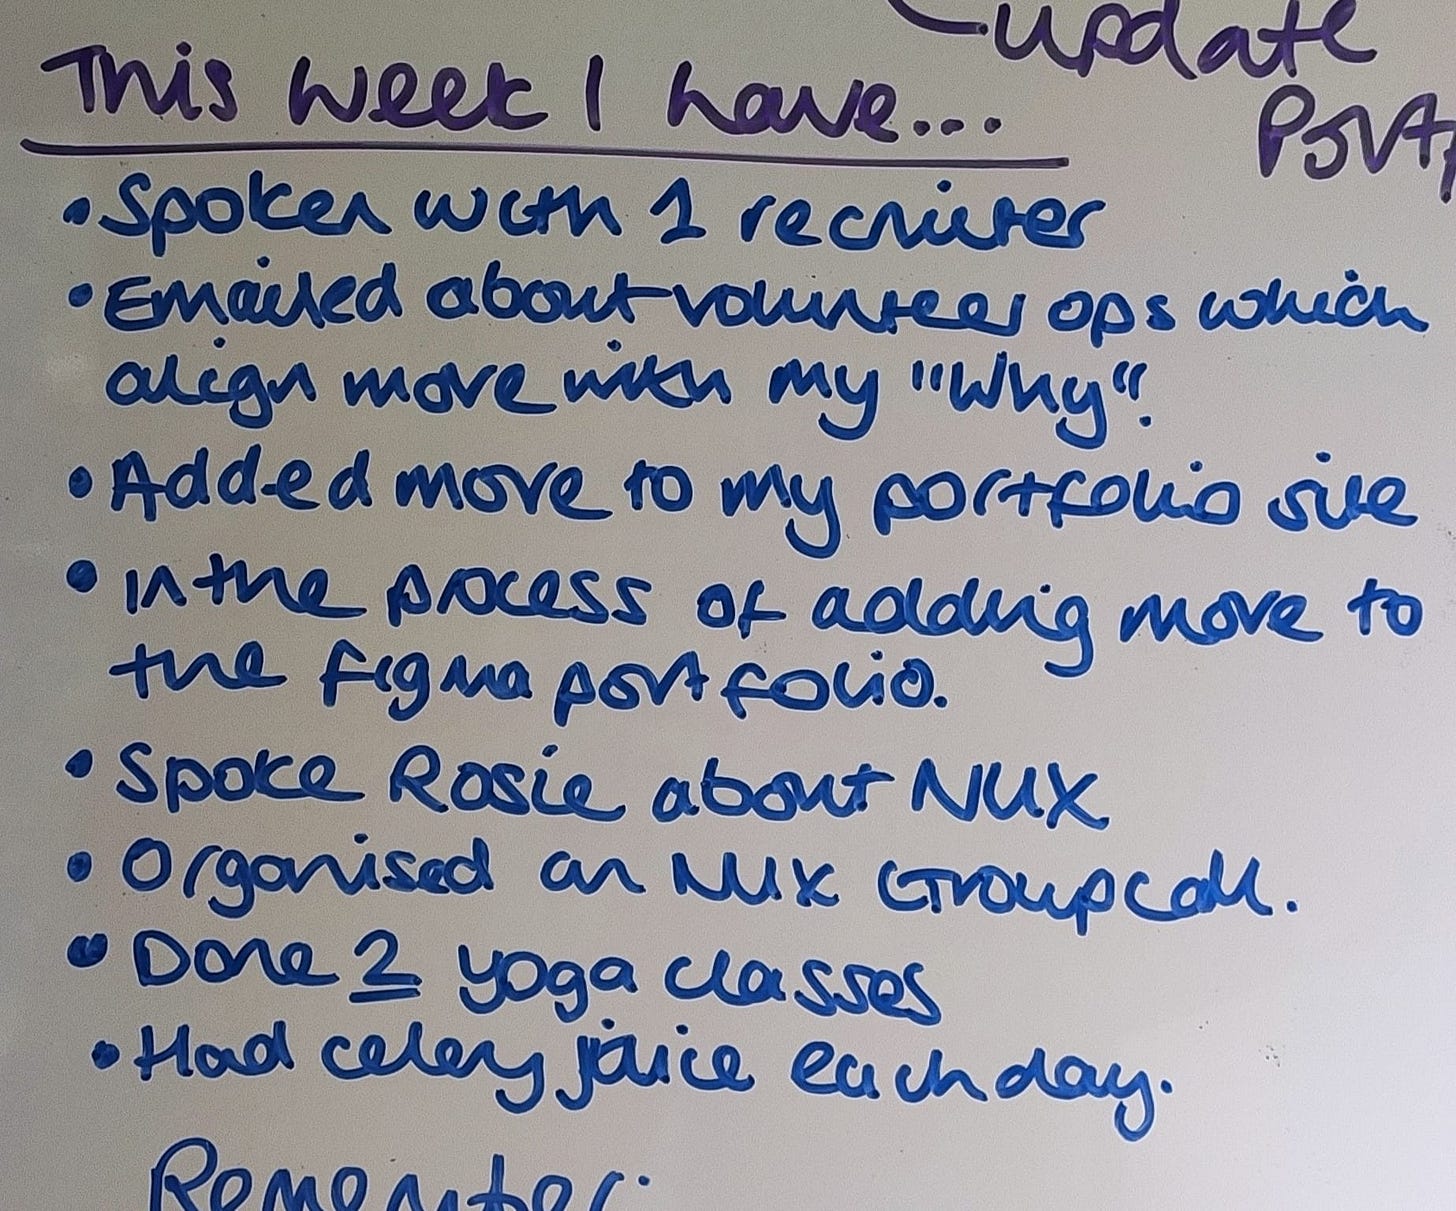 -update
Port
This week I have...
• Spoken with 1 recruiter
• Emailed about volunteer ops which
align more with my "Why".
• Added more to my portfolio site
• In the process of adding more to
the figma portfolio.
• Spoke Rosie about NUX
• Organised an NUX Group call.
• Done 2 yoga classes
• Had celery juice each day.
Remember: